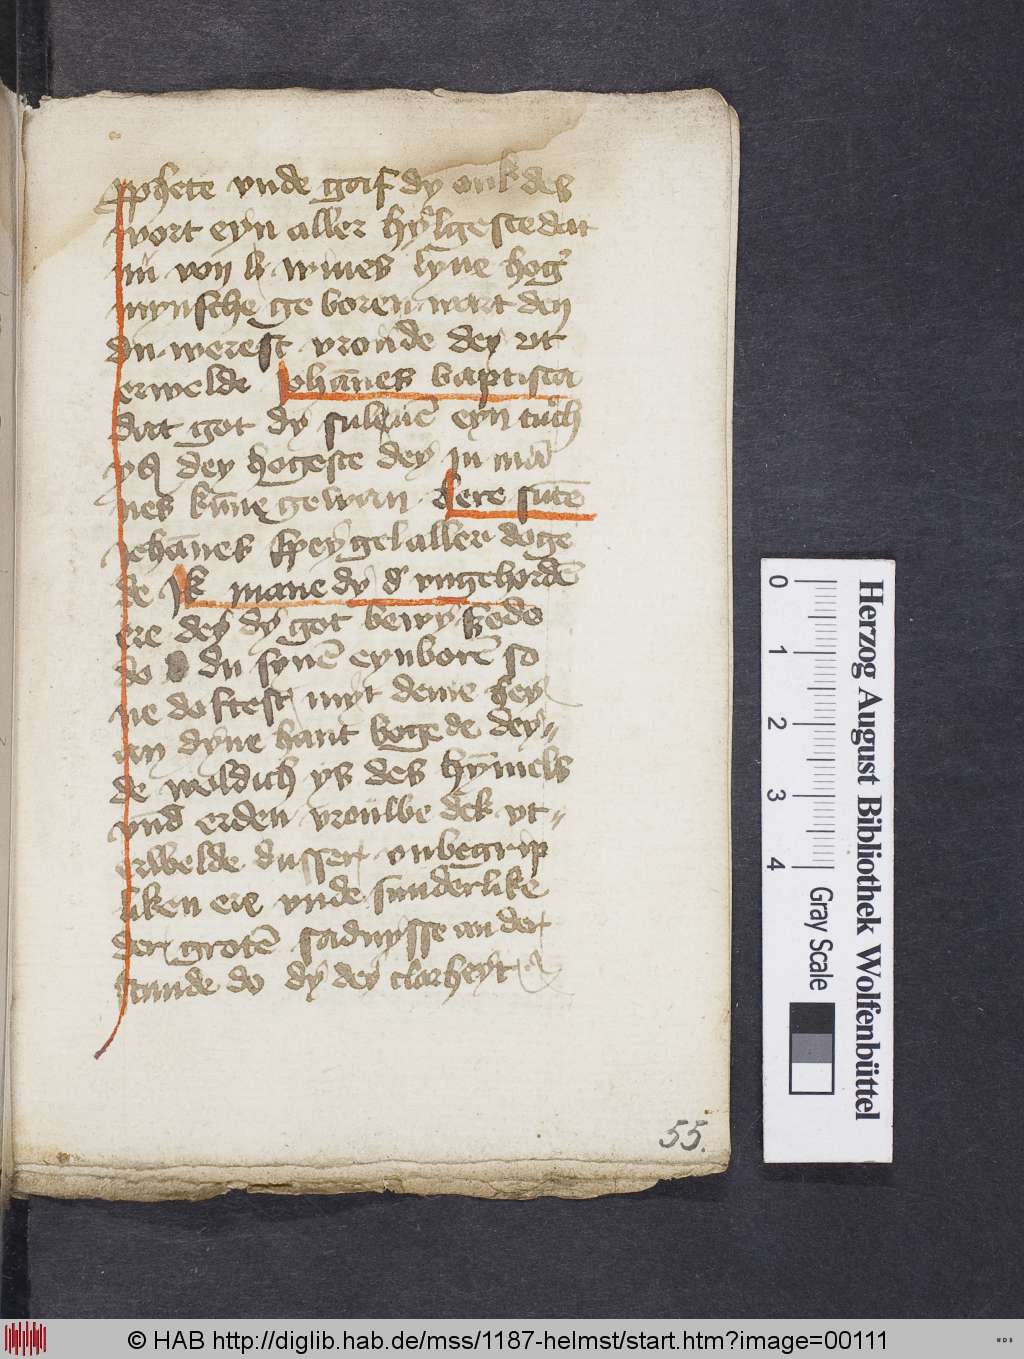 ꝓphete vnde gaf dy ouk des
wort eyn aller hylgeste dat
nu von wiues hog
mynsche ge boren wart den
du werest vronde dey vt
erwelde Johānes baptista
dat got dy suluē eyn tuch
ys dey hogeste dey in mā
nes kūne gewan Here sūte
iohānes speygel aller doge
de Ik mane dy d vngehordē
ere dey dy got bewysede
do du synē eynborē so
ne doftest myt deme gey
an dyne hant bogede dey
de weldich ys des hymels
vnd erden vrouwe dek vt
erwelde dusser vnbegrip
liken ere vnde sunderlike
der grotē an der
stunde do dy dey clarheyt
55.
Herzog August Bibliothek Wolfenbüttel
0 1 2 3 4
Gray Scale
© HAB http://diglib.hab.de/mss/1187-helmst/start.htm?image=00111
WDB